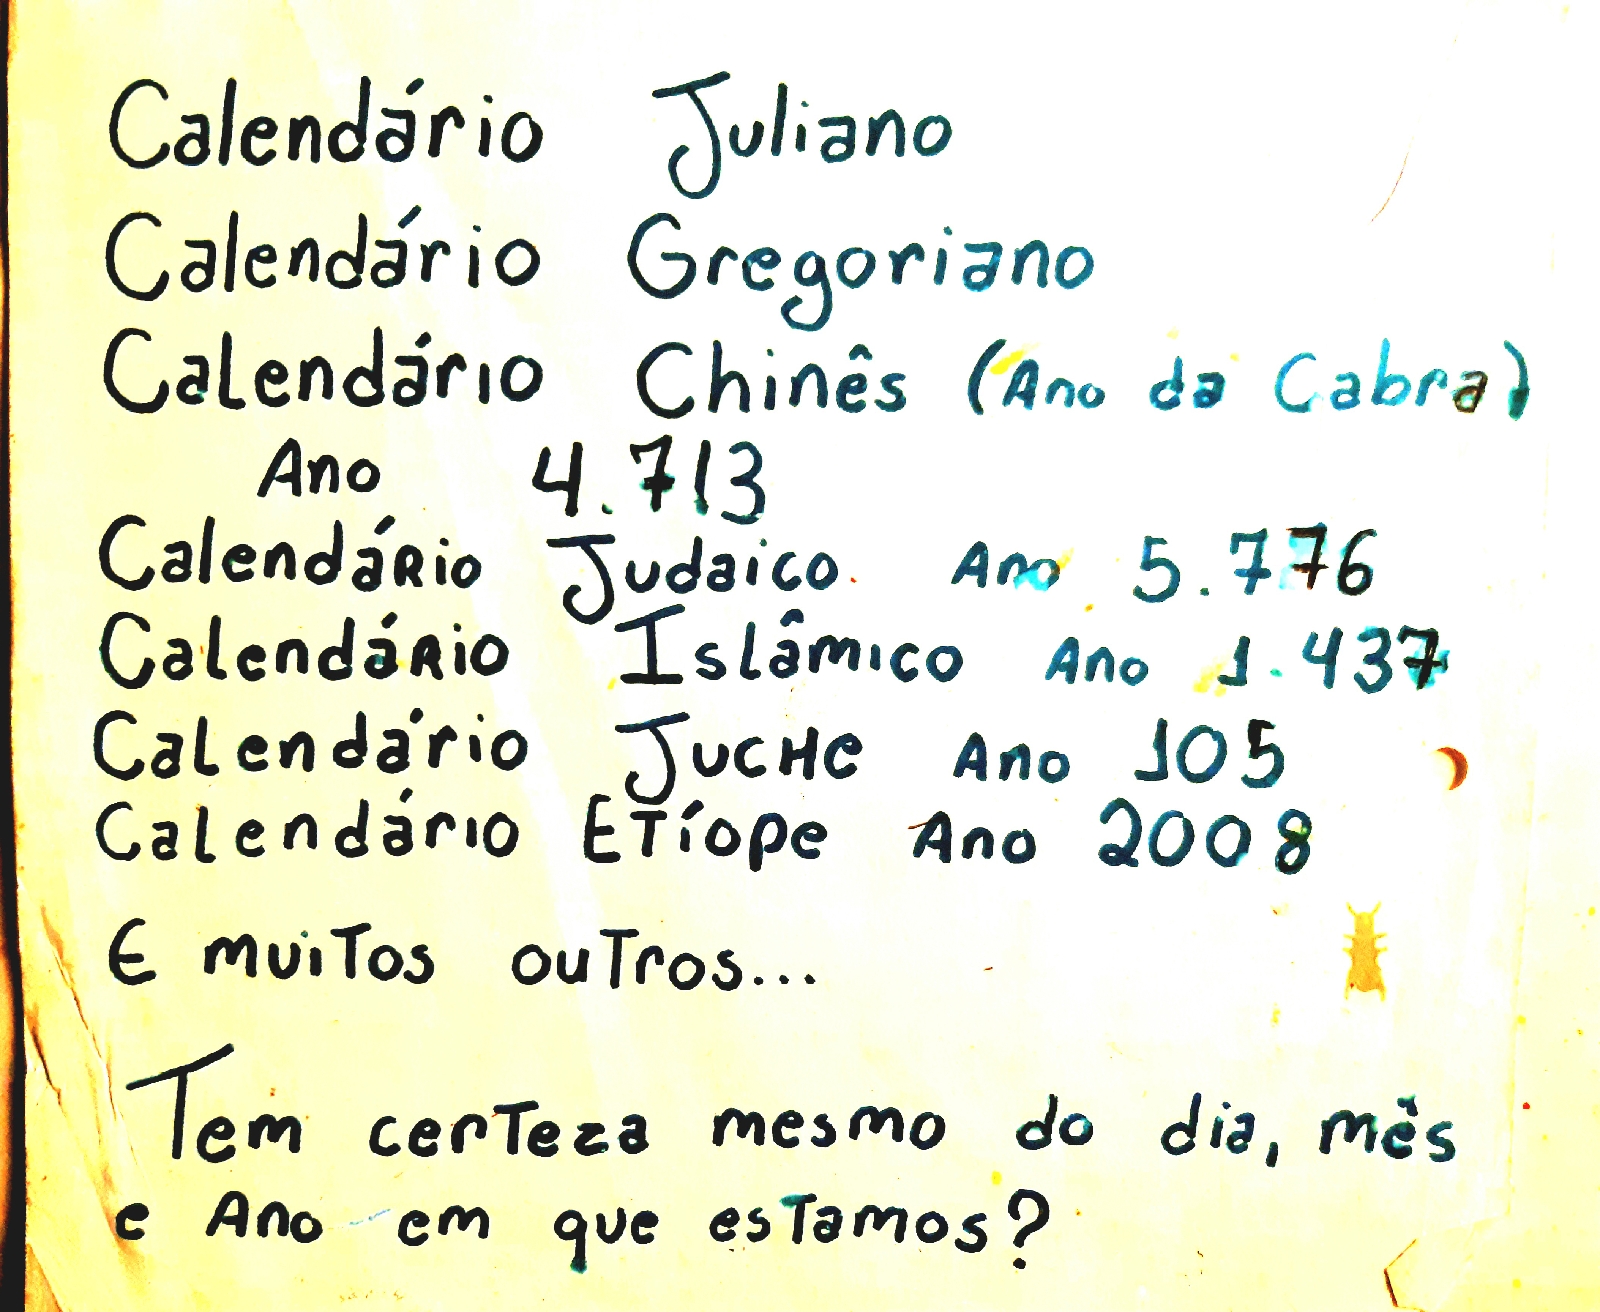 Calendário Juliano
Calendário Gregoriano
Calendário Chinês (Ano da Cabra)
Ano 4.713
Calendário Judaico. Ano 5.776
Calendário Islâmico Ano 1.437
Calendário Juche Ano 105
Calendário Etíope Ano 2008
E muitos outros...
Tem certeza mesmo do dia, mês
e Ano em que estamos?